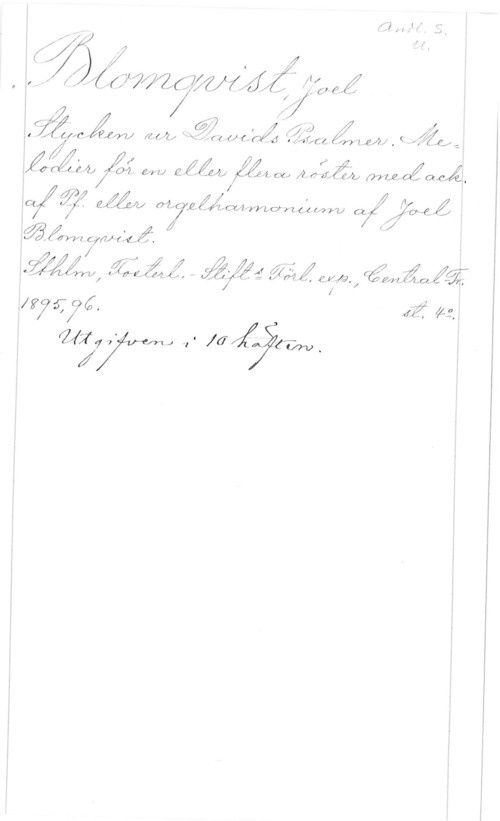 Andl. S.
U.
Blomqvist, Joel
Stycken ur Davids Psalmer. Me=
lodier för en eller flera röster med ack.
af Pf. eller orgelharmonium af Joel
Blomqvist.
Sthlm, Fosterl.-Stift:s Förl. exp., Central-Tr.
1895, 96. st. 4:o.
Utgifven i 10 häften.